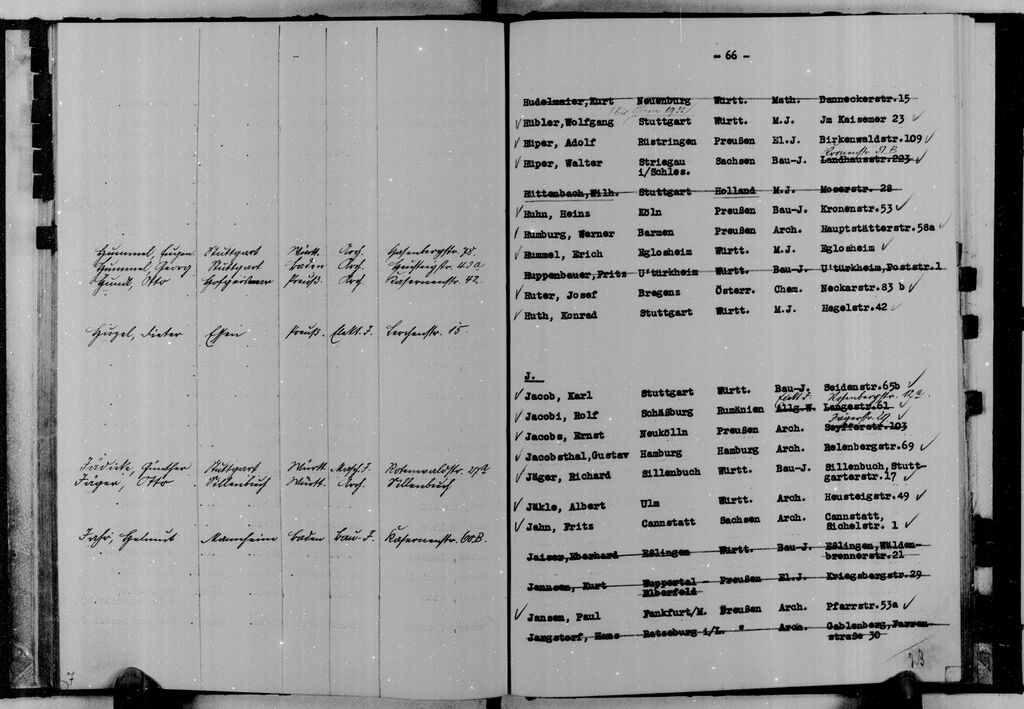 Hummel, Eugen Stuttgart Württ. Arch. Hasenbergstr. 75.
Hummel, Georg Stuttgart Baden Arch. 43a
Hund, Otto Preuß. Arch. Kasernenstr. 42.
Hugel, Dieter Essen Preuß. Elekt. J. Lerchenstr. 15.
Jädicke, Günther Stuttgart Württ. Masch. J. Rotenwaldstr.
Jäger, Otto Sillenbuch Württ. Arch. Sillenbuch
Jahr, Helmut Mannheim Baden Bau-J. Kasernenstr. 60B.
7
- 66 -
Hudelmaier,Kurt Neuenburg Württ. Math. Danneckerstr.15
√ Hübler,Wolfgang Stuttgart Württ. M.J. Jm Kaisemer 23 √
√ Hüper, Adolf Rüstringen Preußen El.J. Birkenwaldstr.109 √
√ Hüper, Walter Striegau Sachsen Bau-J. Landhausstr.223 √
i/Schles.
Hüttenbach,Wilh. Stuttgart Holland M.J. Moserstr. 28
√ Huhn, Heinz Köln Preußen Bau-J. Kronenstr.53 √
√ Humburg, Werner Barmen Preußen Arch. Hauptstätterstr.58a √
√ Hummel, Erich Eglosheim Württ. M.J. Eglosheim √
Huppenbauer,Fritz U'türkheim Württ. Bau-J. U'türkheim,Poststr.1
√ Huter, Josef Bregenz Österr. Chem. Neckarstr.83 b √
√ Huth, Konrad Stuttgart Württ. M.J. Hegelstr.42 √
J.
√ Jacob, Karl Stuttgart Württ. Bau-J. Seidenstr.65b √
Elekt J. Rosenbergstr. 12a.
√ Jacobi, Rolf Schäßburg Rumänien Allg.W. Langestr.61 √
Jägerstr.
√ Jacobs, Ernst Neukölln Preußen Arch. Seyfferstr.103
√ Jacobsthal,Gustav Hamburg Hamburg Arch. Relenbergstr.69 √
√ Jäger, Richard Sillenbuch Württ. Bau-J. Sillenbuch,Stutt-
garterstr.17 √
√ Jäkle, Albert Ulm Württ. Arch. Heusteigstr.49 √
√ Jahn, Fritz Cannstatt Sachsen Arch. Cannstatt,
Sichelstr. 1 √
Jaiser,Eberhard Eßlingen Württ. Bau-J. Eßlingen,Wälden-
brennerstr.21
Jannsen, Kurt Wuppertal - Preußen El.J. Kriegsbergstr.29
Elberfeld
√ Jansen, Paul Fankfurt/M. Preußen Arch. Pfarrstr.53a √
Jargstorf, Hans Ratzeburg i/L. " Arch. Gablenberg,Farren-
straße 30